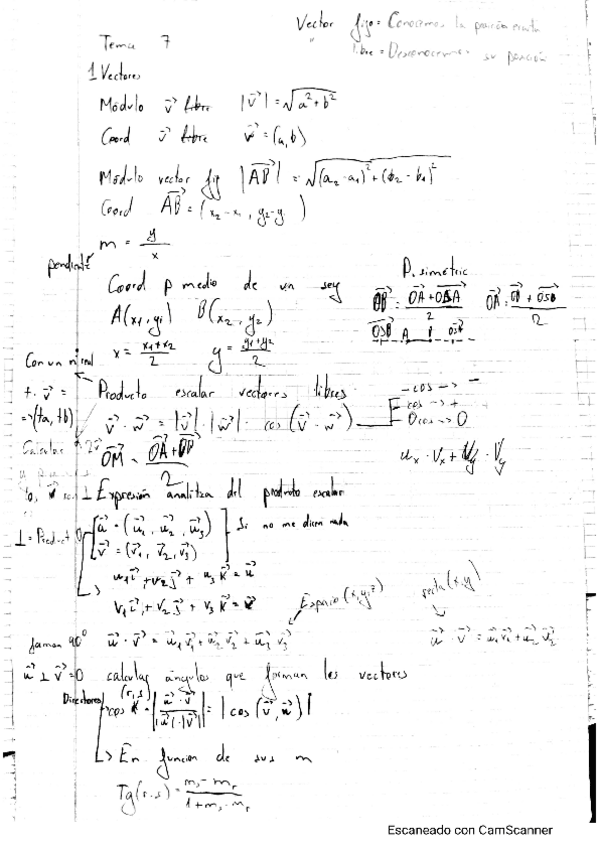 Vector fijo = Conocemos la posición exacta
" libre = Desconocemos su posición
Tema 7
1 Vectores
Módulo v⃗ libre |v⃗| = √(a² + b²)
Coord v⃗ libre v⃗ = (a, b)
Módulo vector fijo |AB⃗| = √((a₂ - a₁)² + (b₂ - b₁)²)
Coord AB⃗ = (x₂ - x₁, y₂ - y )
m = y/x
pendiente
Coord p medio de un seg
A(x₁, y₁) B(x₂, y₂)
x = (x₁ + x₂)/2 y = (y₁ + y₂)/2
P. simétric
Con un n real
t · v⃗ =
=> (ta, tb)
Producto escalar vectores libres
v⃗ · w⃗ = |v⃗| · |w⃗| · cos (v⃗ · w⃗)
- cos -> -
cos -> +
0 cos -> 0
uₓ · Vₓ + Uy · Vy
Calculas
OM⃗ =
2
Expresión analitza del produto escalar
⊥ = Product 0
u⃗ = (u⃗₁, u⃗₂, u⃗₃)
v⃗ = (v⃗₁, v⃗₂, v⃗₃)
Si no me dicen nada
u₁i⃗ + v₂j⃗ + u₃k⃗ = u⃗
v₁i⃗ + v₂j⃗ + v₃k⃗ = v⃗
Espacio (x, y, z)
recta (x, y)
forman 90°
u⃗ · v⃗ = u⃗₁v⃗₁ + u⃗₂v⃗₂ + u⃗₃v⃗₃
u⃗ · v⃗ = u⃗₁v⃗₁ + u⃗₂v⃗₂
u⃗ ⊥ v⃗ = 0 calculas ángulos que forman les vectores
Directores
(r, s)
cos = |u⃗ · v⃗ / |u⃗| · |v⃗|| = |cos (v⃗, u⃗)|
En funcion de sus m
Tg(r, s) = (mₛ - mᵣ)/(1 + mₛ · mᵣ)
Escaneado con CamScanner